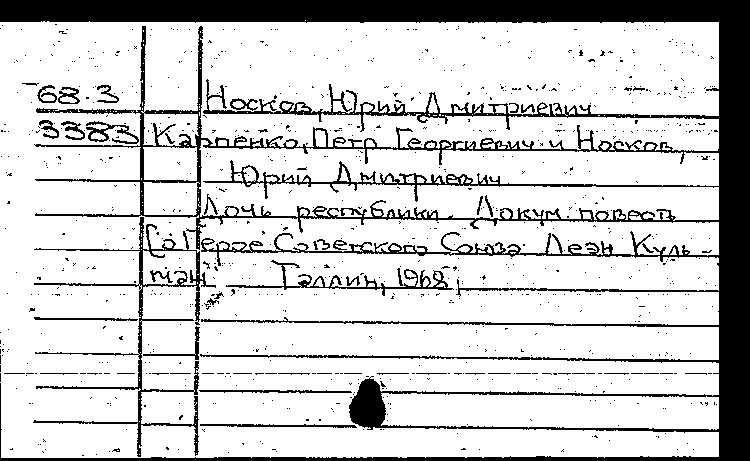 68.3 Носков, Юрий Дмитриевич
3383 Карпенко, Петр Георгиевич и Носков,
Юрий Дмитриевич
Дочь республики. Докум. повесть
[о Герое Советского Союза Леэн Куль-
ман] Таллин, 1968,